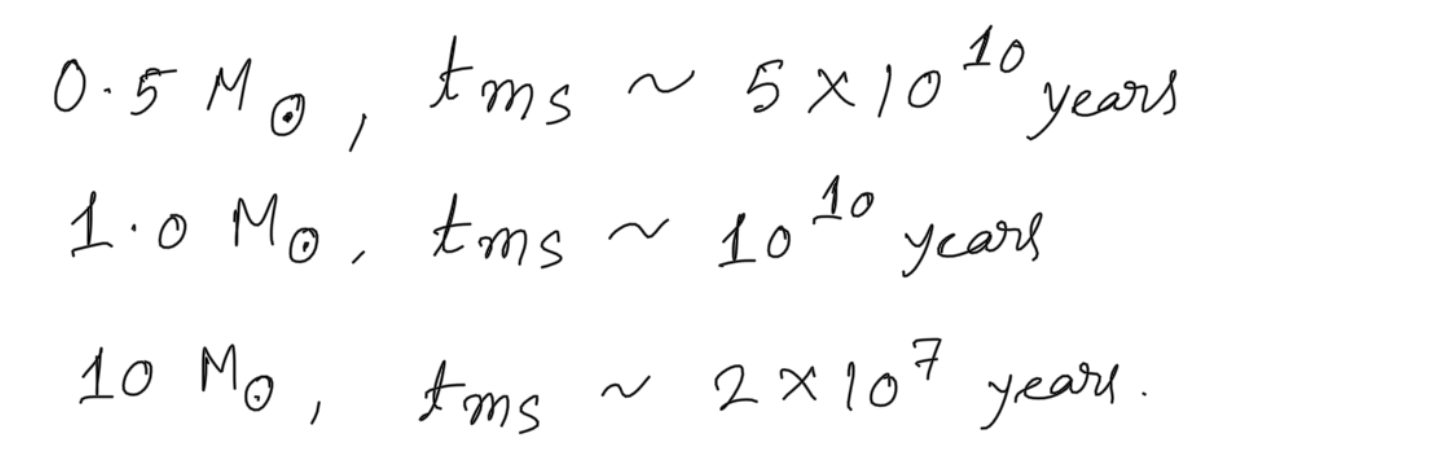 0.5 M☉, tms ~ 5 × 10^10 years
1.0 M☉, tms ~ 10^10 years
10 M☉, tms ~ 2 × 10^7 years.